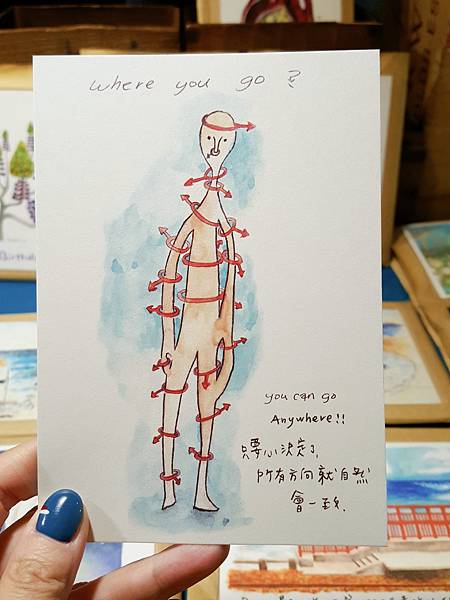 where you go ?
you can go
Anywhere!!
只要心決定了,
所有方向就自然
會一致.
Birthda